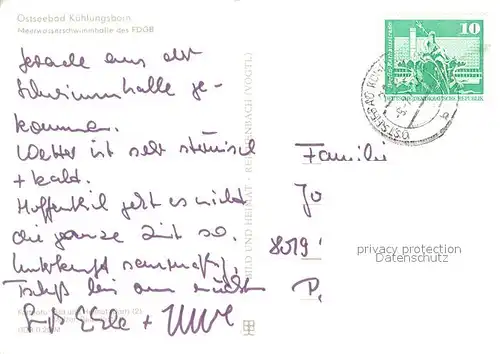 Ostseebad Kühlungsborn
Meerwasserschwimmhalle des FDGB
Gerade aus der
Schwimmhalle ge-
kommen.
Wetter ist sehr stürmisch
+ kalt.
Hoffentlich geht es nicht
die ganze Zeit so.
Unterkunft
Tschüß bis zum nächsten
Gruß + Uwe
BILD UND HEIMAT · REICHENBACH (VOGTL)
10
DEUTSCHE DEMOKRATISCHE REPUBLIK
OSTSEEBAD
b
Familie
Jo
8019
P.
privacy protection
Datenschutz